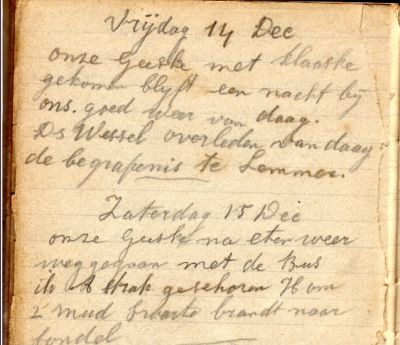 Vrijdag 14 Dec
onze Geeske met Klaaske
gekomen blyft een nacht by
ons. goed weer van daag.
Ds Wessel overleden van daag
de begrafenis te Lemmer.
Zaterdag 15 Dec
onze Geeske na eten weer
weggegaan met de Bus
geschoren H om
1 mud brandt naar